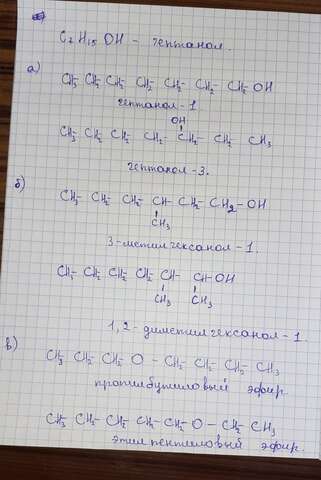 C₇H₁₅OH - гептанол.
а)
CH₃-CH₂-CH₂-CH₂-CH₂-CH₂-CH₂OH
гептанол-1.
OH
CH₃-CH₂-CH₂-CH₂-CH₂-CH₂-CH₃
гептанол-3.
б)
CH₃-CH₂-CH₂-CH-CH₂-CH₂-OH
CH₃
3-метилгексанол-1.
CH₃-CH₂-CH₂-CH₂-CH-CH-OH
CH₃ CH₃
1,2-диметилгексанол-1.
в)
CH₃-CH₂-CH₂-O-CH₂-CH₂-CH₂-CH₃
пропилбутиловый эфир
CH₃-CH₂-CH₂-CH₂-CH₂-O-CH₂-CH₃
этилпентиловый эфир.